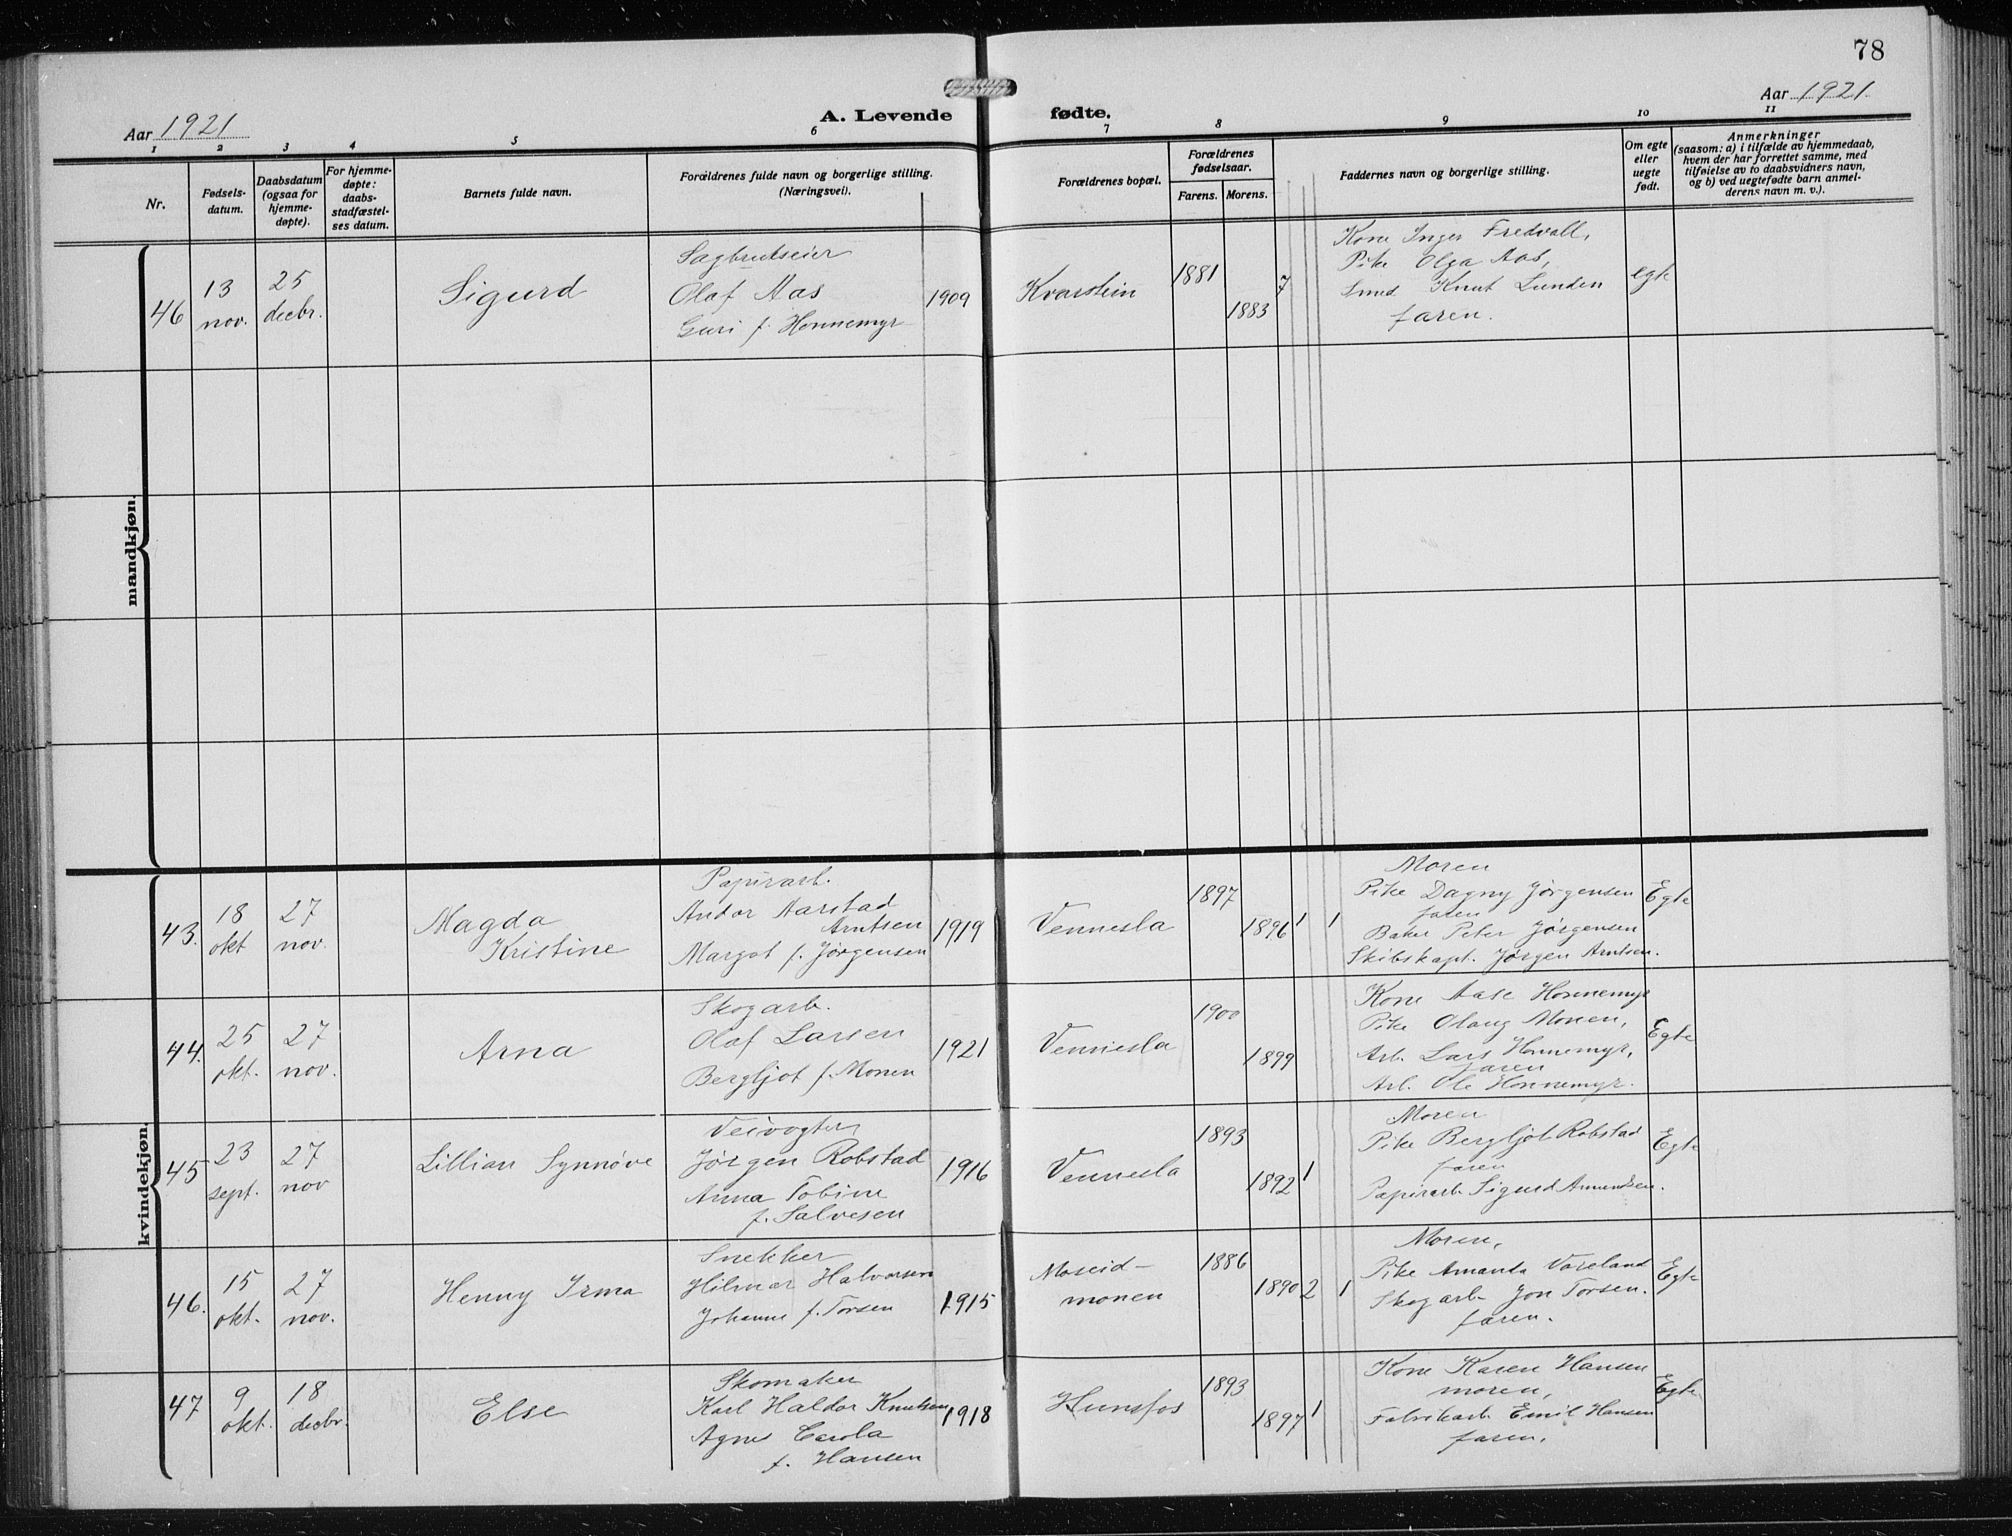 78
Aar 1921
A. Levende fødte.
Aar 1921
1 2 3 4 5 6 7 8 9 10 11
Nr.
Fødsels-
datum.
Daabsdatum
(ogsaa for
hjemme-
døpte).
For hjemme-
døpte:
daabs-
stadfæstel-
ses datum.
Barnets fulde navn.
Forældrenes fulde navn og borgerlige stilling.
(Næringsvei).
Forældrenes bopæl.
Forældrenes
fødselsaar.
Farens. Morens.
Faddernes navn og borgerlige stilling.
Om egte
eller
uegte
født.
Anmerkninger
(saasom: a) i tilfælde av hjemmedaab,
hvem der har forrettet samme, med
tilføielse av to daabsvidners navn,
og b) ved uegtefødte barn anmel-
derens navn m. v.).
mandkjøn.
46
13
nov.
25
decbr.
Sigurd
Sagbrukseier
Olaf Aas
Guri f. Honnemyr
1909
Kvarstein
1881
1883
7
Kone Inger Fredvall,
Pike Olga Aas,
Smed Knut Lunden
faren.
egte
kvindekjøn.
43.
18
okt
27
nov.
Magda
Kristine
Papirarb.
Andor Aarstad
Arntsen
Margot f. Jørgensen
1919
Vennesla
1897
1896
1 1
Moren
Pike Dagny Jørgensen
faren
Baker Peter Jørgensen
Skibskapt. Jørgen Arntsen.
Egte
44.
25
okt.
27
nov.
Arna
Skogarb.
Olaf Larsen
Bergljot f. Monen
1921
Vennesla
1900
1899
Kone Aase Honnemyr
Pike Olaug Monen,
Arb. Lars Honnemyr,
faren
Arb. Ole Honnemyr.
Egte
45
23
sept.
27
nov
Lillian Synnøve
Veivogter
Jørgen Robstad
Anna Tobine
f. Salvesen
1916
Vennesla
1893
1892
1
Moren
Pike Bergljot Robstad
faren
Papirarb. Sigurd Amundsen.
Egte
46.
15
okt.
27
nov.
Henny Irma
Snekker
Hilmar Halvorsen
Johanne f. Torsen
1915
Moseid-
monen
1886
1890
2 1
Moren,
Pike Amanda Vareland
Skogarb. Jon Torsen.
faren.
Egte
47
9
okt.
18
decbr.
Else
Skomaker
Karl Haldor Knutsen
Agnes Carola
f. Hansen
1918
Hunsfos
1893
1897
1
Kone Karen Hansen
moren,
Fabrikarb. Emil Hansen
faren.
Egte